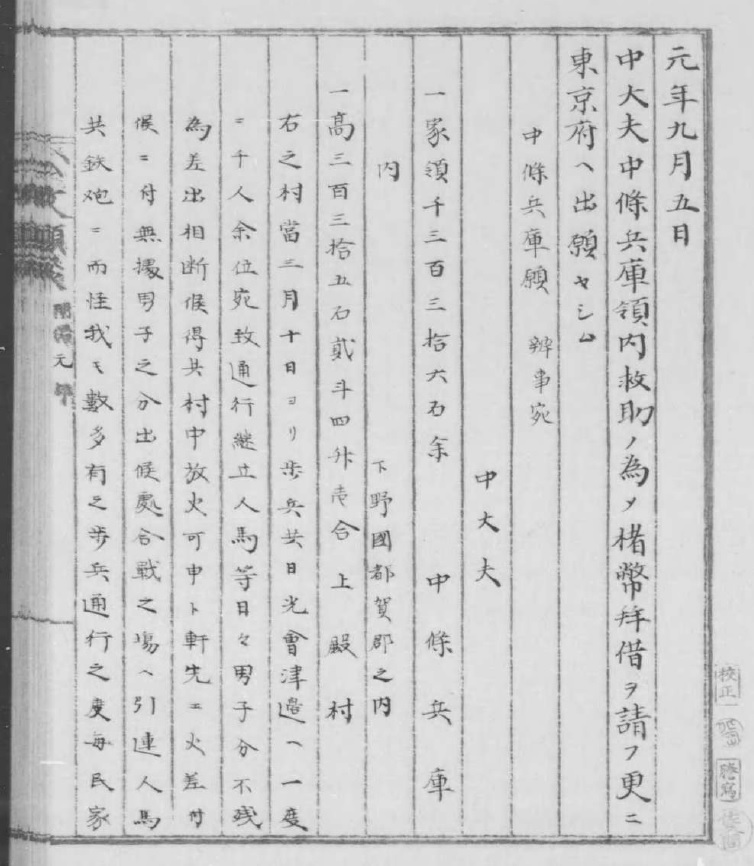 元年九月五日
中大夫中條兵庫領内救助ノ為メ楮幣拜借ヲ請フ更ニ
東京府ヘ出願セシム
中條兵庫願　辨事宛
中大夫
一家領千三百三拾六石余　中條兵庫
内　下野國都賀郡之内
一高三百三拾五石貳斗四舛壱合　上殿村
右之村當三月十日ヨリ歩兵共日光會津邉ヘ一度
ニ千人余位宛致通行継立人馬等日々男子分不残
為差出相断候得共村中放火可申ト軒先ニ火差付
候ニ付無據男子之分出候處合戰之場ヘ引連人馬
共鉄炮ニ而怪我モ數多有之歩兵通行之度毎民家
元年
校正
謄寫